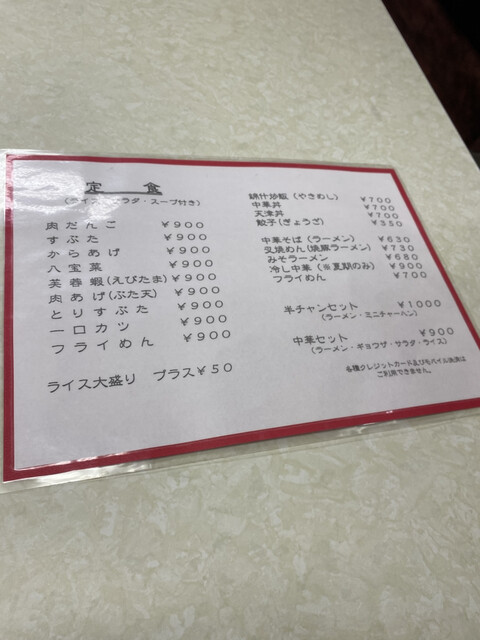 定 食
(ライス・サラダ・スープ付き)
肉だんご ￥900
すぶた ￥900
からあげ ￥900
八宝菜 ￥900
芙蓉蝦(えびたま) ￥900
肉あげ(ぶた天) ￥900
とりすぶた ￥900
一口カツ ￥900
フライめん ￥900
ライス大盛り プラス￥50
錦什炒飯(やきめし) ￥700
中華丼 ￥700
天津丼 ￥700
餃子(ぎょうざ) ￥350
中華そば(ラーメン) ￥630
叉焼めん(焼豚ラーメン) ￥730
みそラーメン ￥680
冷し中華(※夏期のみ) ￥900
フライめん ￥700
半チャンセット ￥1000
(ラーメン・ミニチャーハン)
中華セット ￥900
(ラーメン・ギョウザ・サラダ・ライス)
各種クレジットカード及びモバイル決済は
ご利用できません。